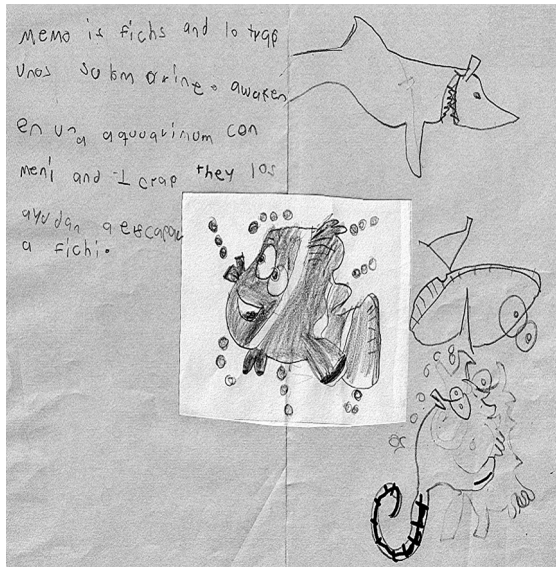 memo is fichs and lo trap
unos submarine. awaken
en una aquuarinum con
meni and I crap they los
ayudan a escapar
a fichi.